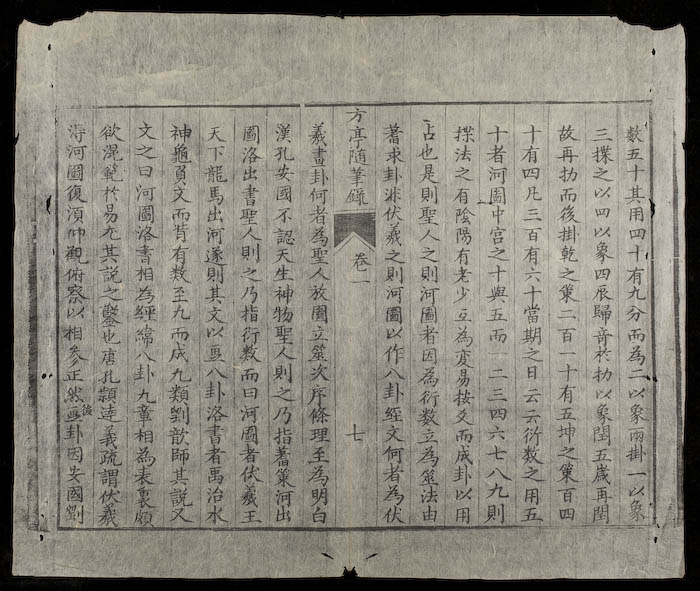 数五十其用四十有九分而為二以象兩掛一以象
三揲之以四以象四辰歸竒於扐以象閏五歲再閏
故再扐而後掛乾之策二百一十有五坤之策百四
十有四凡三百有六十當期之日云云衍数之用五
十者河圖中宮之十與五而一二三四六七八九則
揲法之有陰陽有老少互為変易按爻而成卦以用
占也是則聖人之則河圖者因為衍数立為筮法由
蓍求卦非伏羲之則河圖以作八卦経文何者為伏
方亭随筆錄
卷一
七
羲畫卦何者為聖人放圖立筮次序條理至為明白
漢孔安國不認天生神物聖人則之乃指蓍策河出
圖洛出書聖人則之乃指衍数而曰河圖者伏羲王
天下龍馬出河遂則其文以畫八卦洛書者禹治水
神龜負文而背有数至九而成九類劉歆師其說又
文之曰河圖洛書相為經緯八卦九章相為表裏頗
欲混範於易尤其說之鑿也唐孔頴逹義疏謂伏羲
淂河圖復湏仰觀俯察以相參正然後畫卦因安國劉